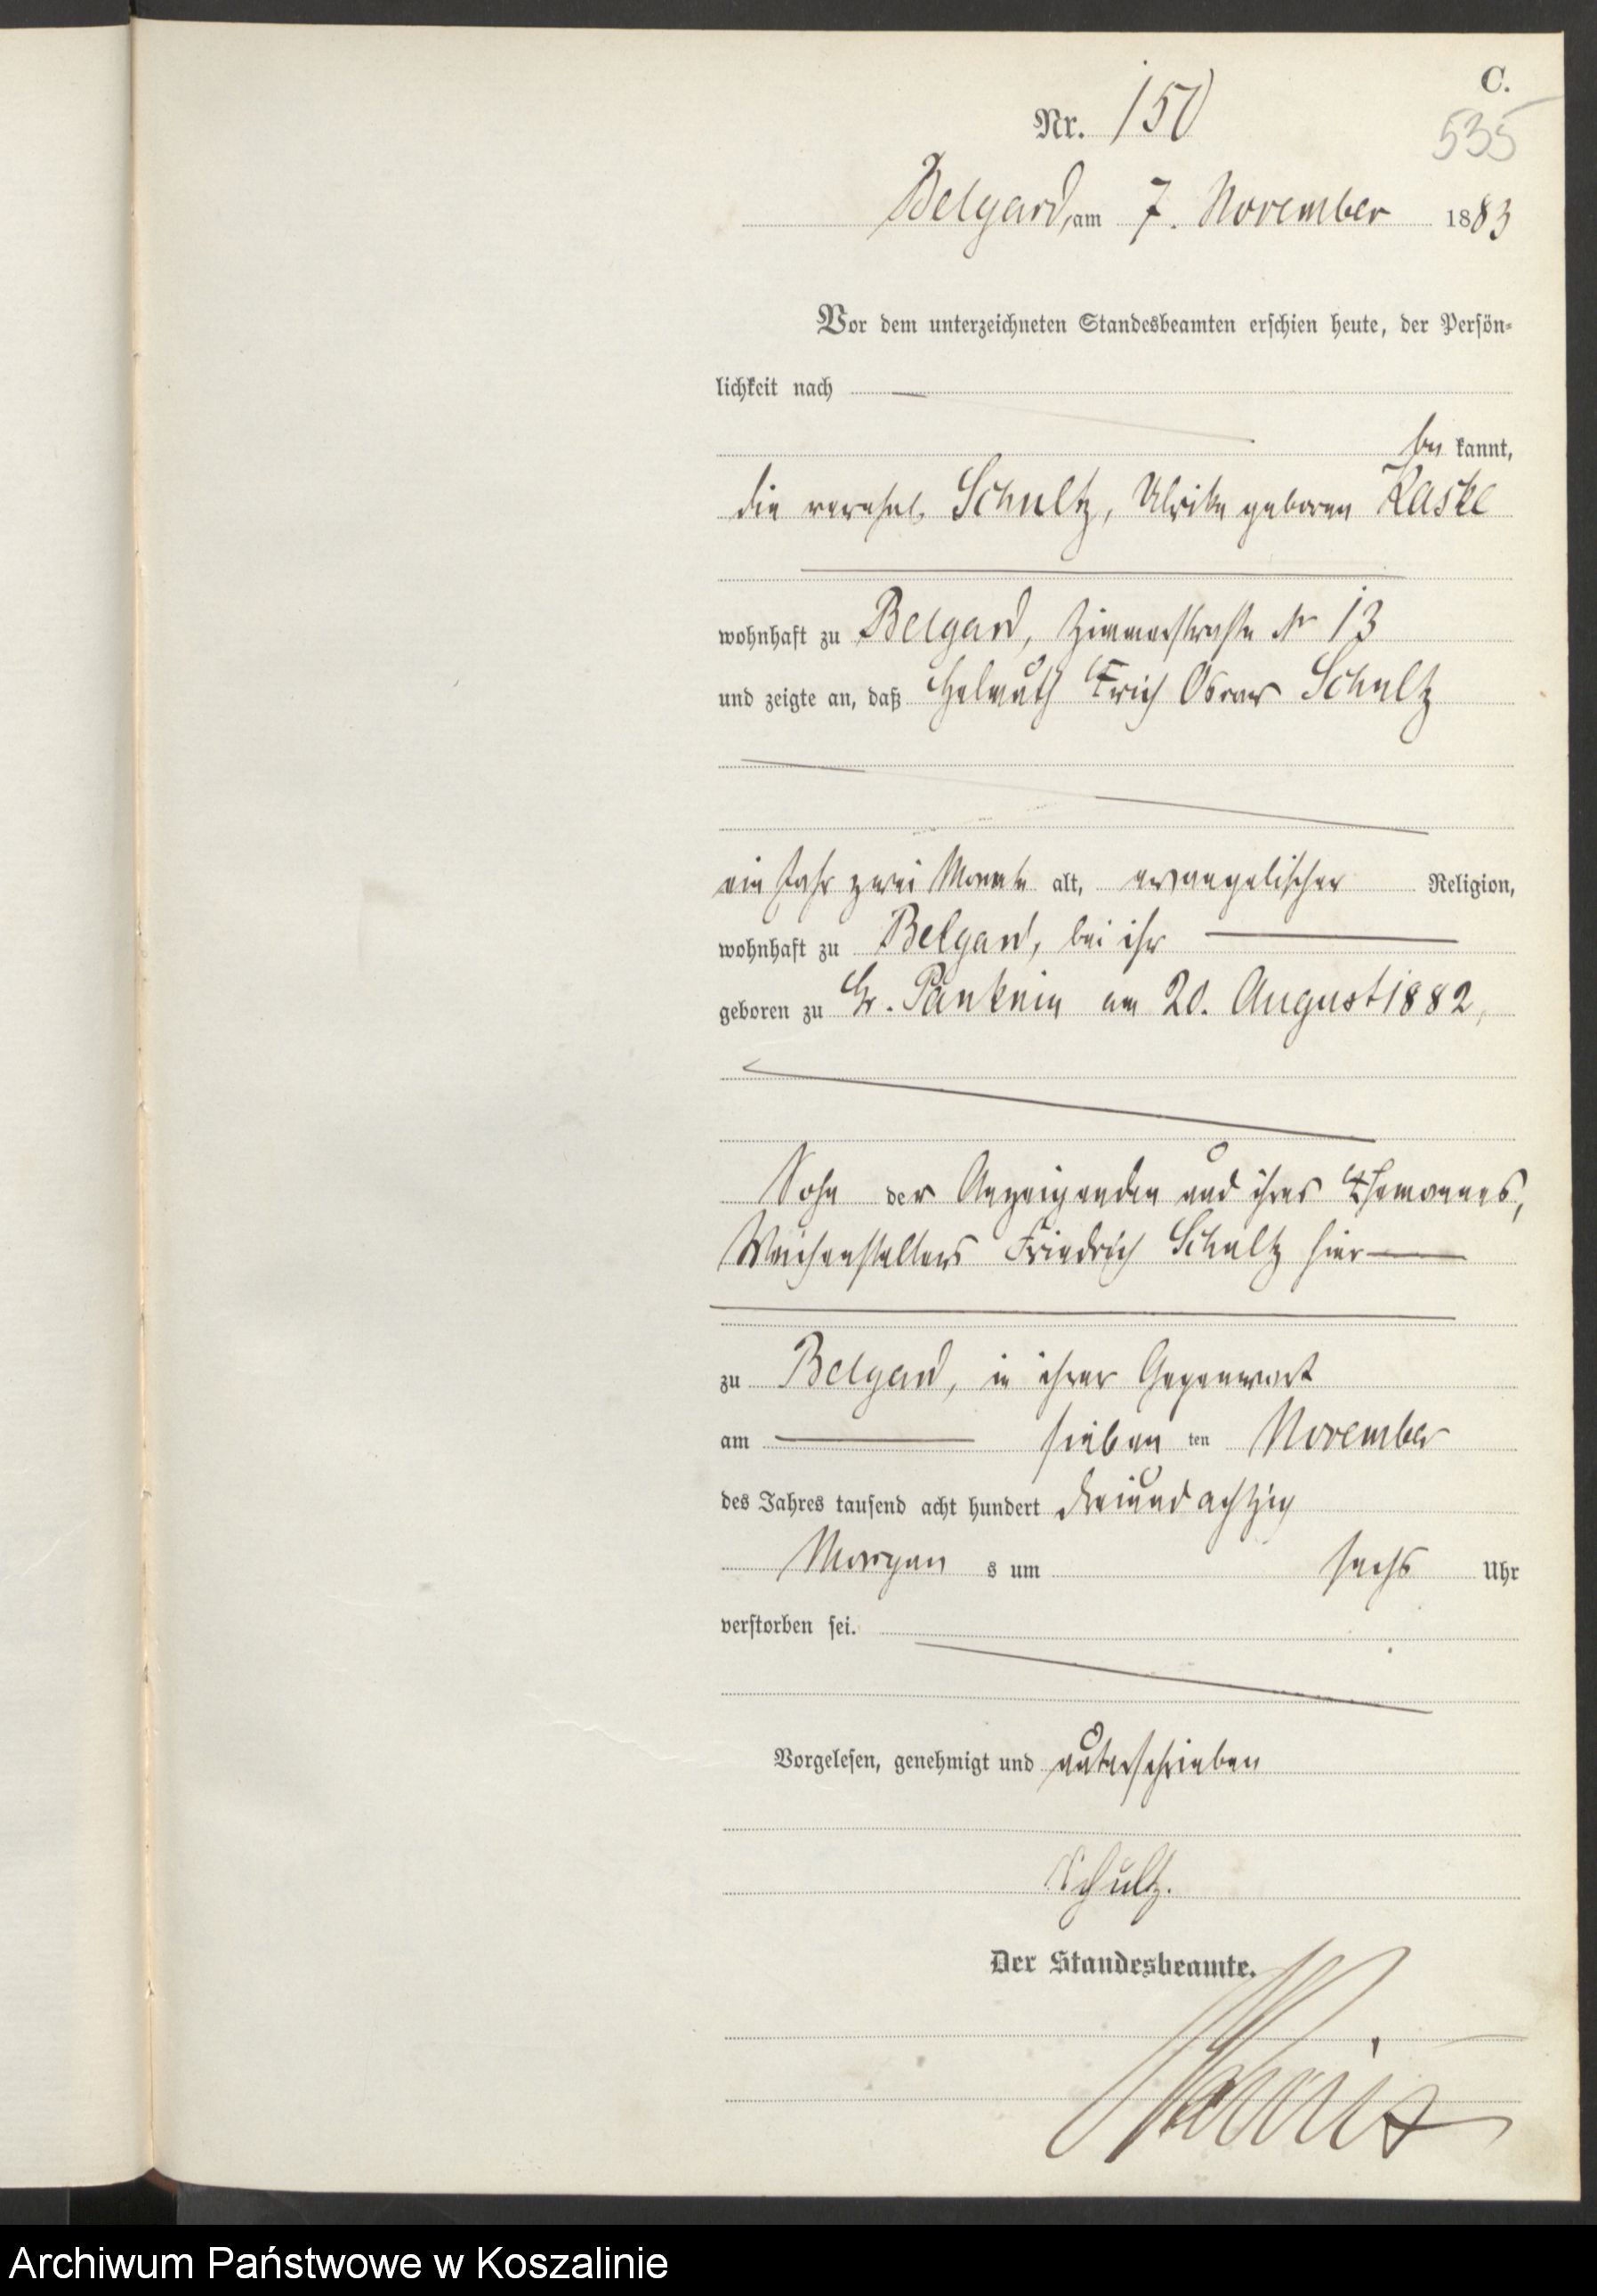 C.
Nr. 150
535
Belgard, am 7. November 1883
Vor dem unterzeichneten Standesbeamten erschien heute, der Persön-
lichkeit nach
be kannt,
die verehel. Schultz, Ulrike geboren Kaske
wohnhaft zu Belgard, Zimmerstraße Nr 13
und zeigte an, daß Helmuth Erich Oscar Schultz
ein Jahr zwei Monate alt, evangelischer Religion,
wohnhaft zu Belgard, bei ihr
geboren zu Gr. Panknin am 20. August 1882,
Sohn der Anzeigenden und ihres Ehemannes,
Weichenstellers Friedrich Schultz hier
zu Belgard, in ihrer Gegenwart
am sieben ten November
des Jahres tausend acht hundert dreiundachtzig
Morgen s um sechs Uhr
verstorben sei.
Vorgelesen, genehmigt und unterschrieben
Schultz.
Der Standesbeamte.
Archiwum Państwowe w Koszalinie